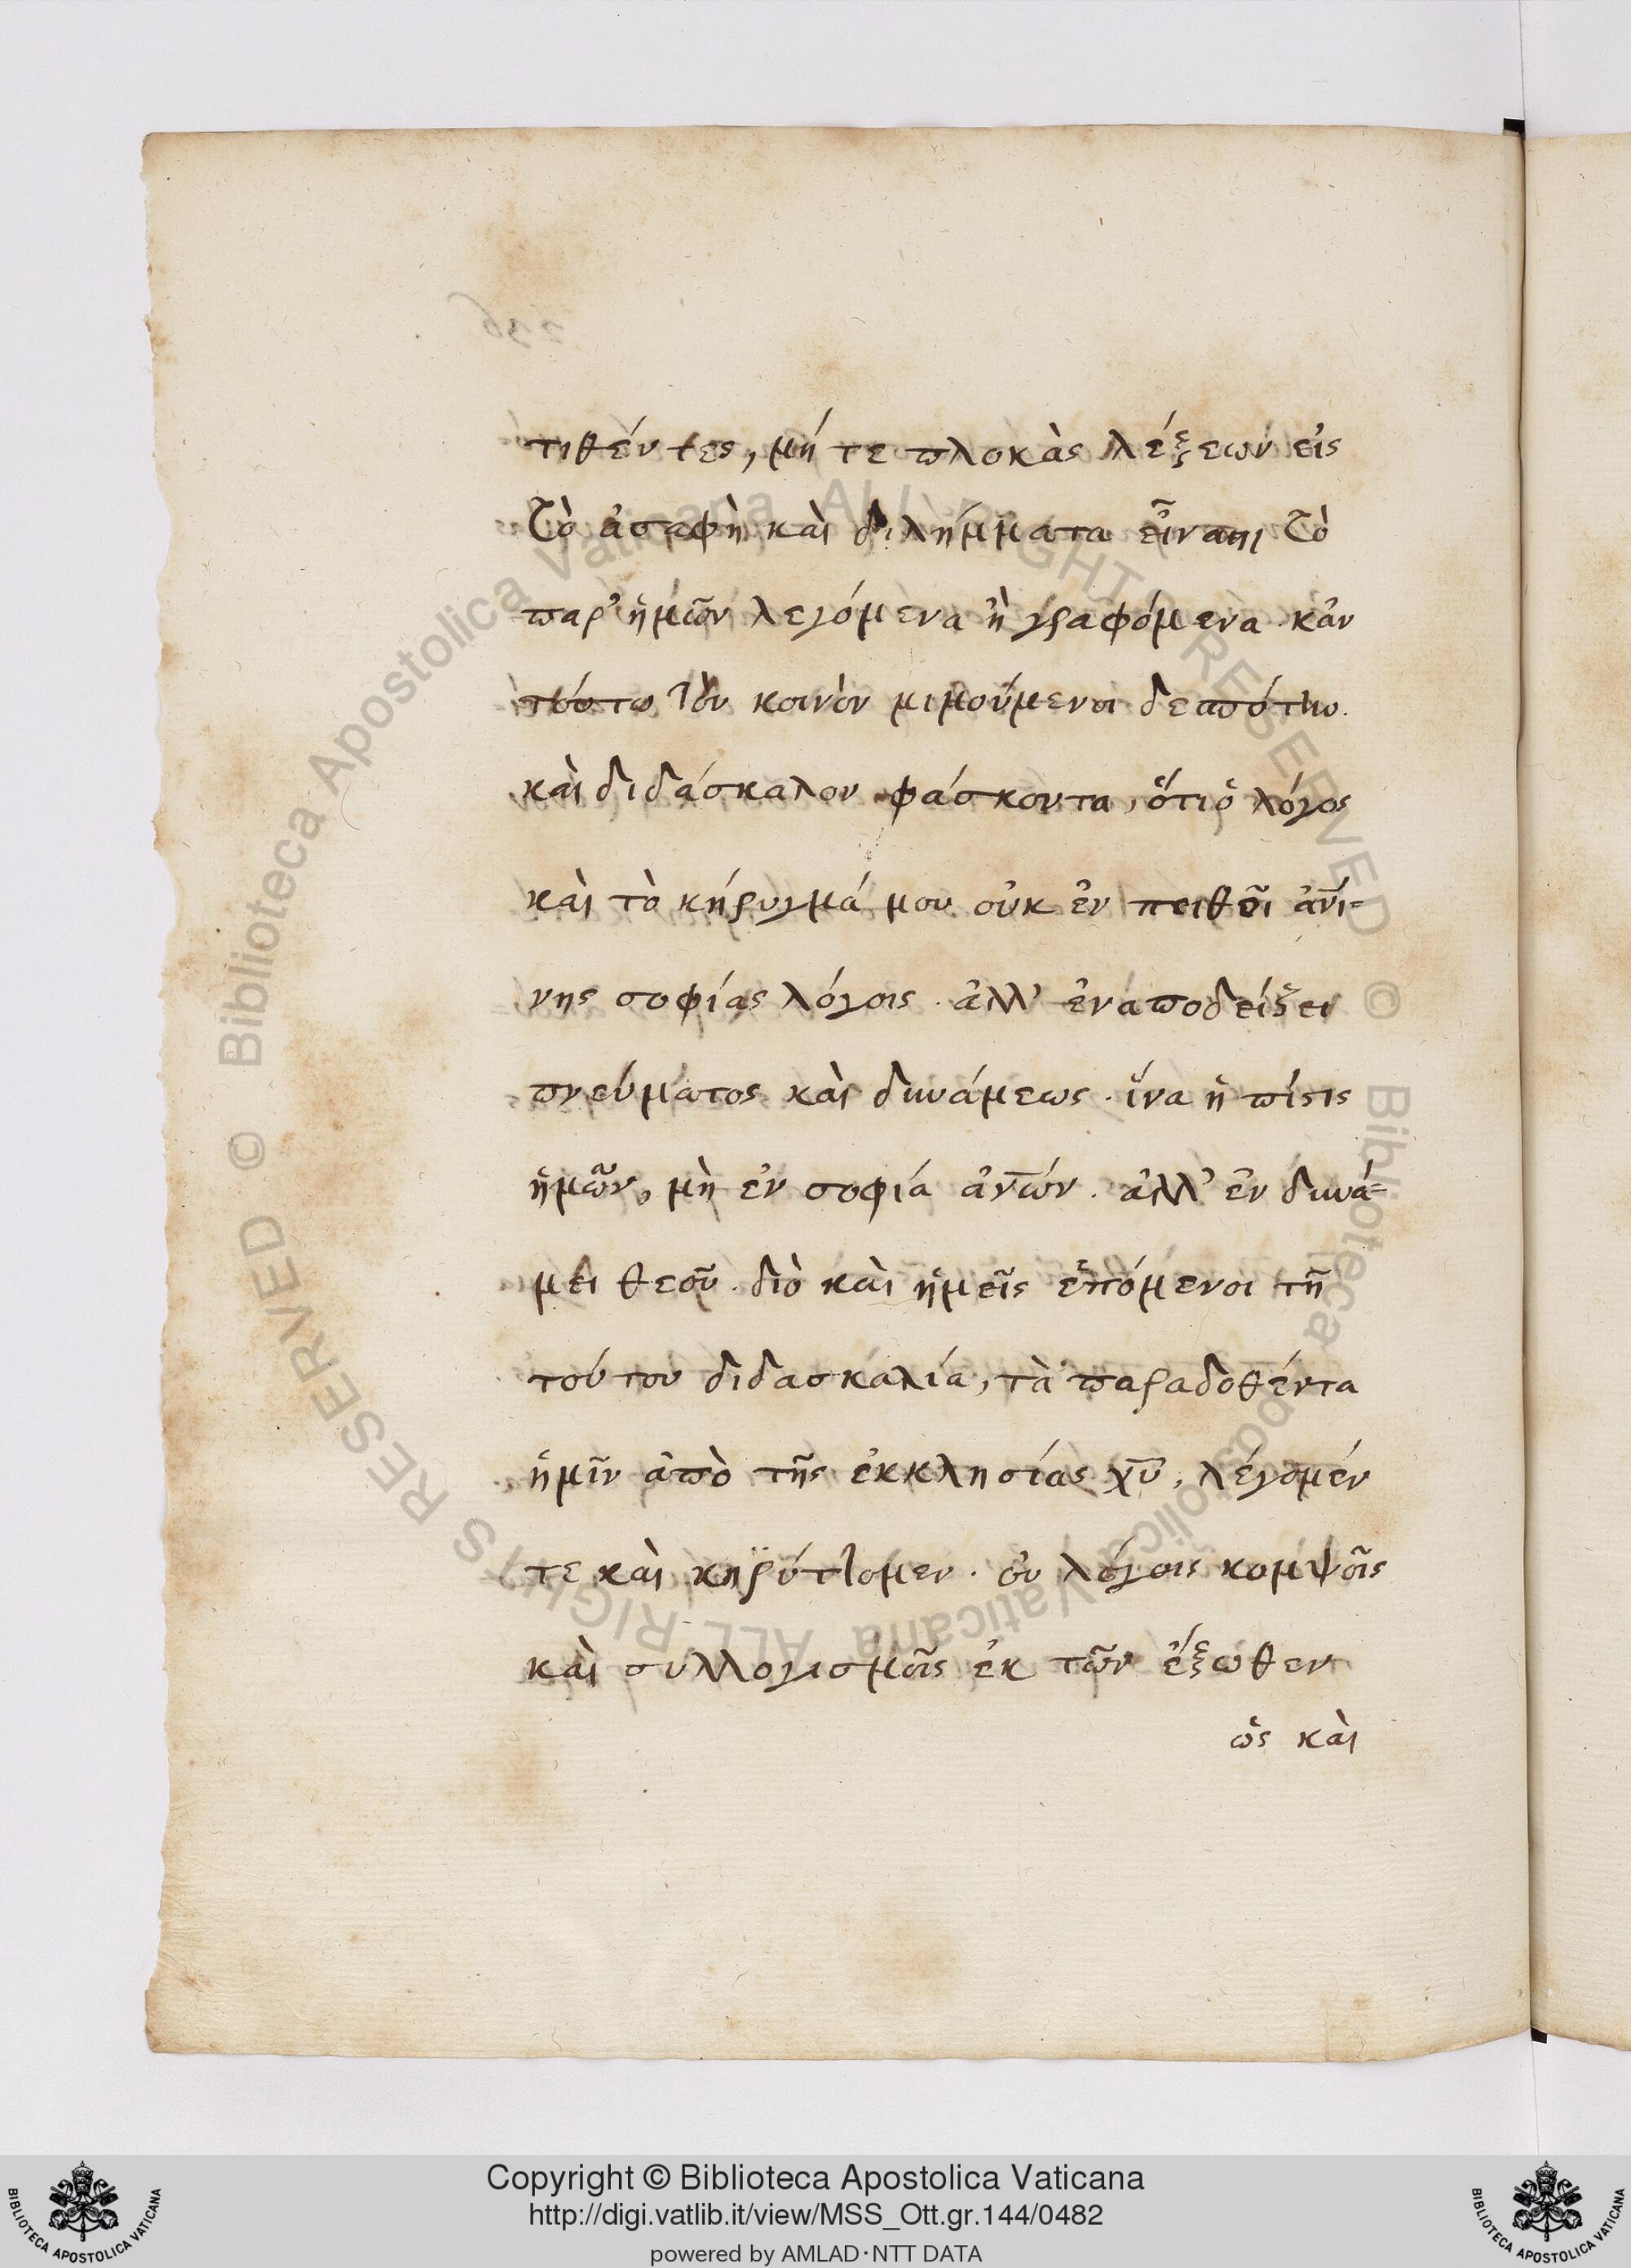 τιθέντες, μή τε πλοκὰς λέξεων εἰς
τὸ ἀσαφὴ καὶ διλήμματα εἶναι τὸ
παρ' ἡμῶν λεγόμενα ἢ γραφόμενα. κἀν
τούτω τὸν κοινὸν μιμούμενοι δεσπότην.
καὶ διδάσκαλον φάσκοντα, ὅτι ὁ λόγος
καὶ τὸ κήρυγμά μου οὐκ ἐν πειθοῖ ἀνῑ-
νης σοφίας λόγοις. ἀλλ' ἐν ἀποδείξει
πνεύματος καὶ δυνάμεως. ἵνα ἡ πίστις
ἡμῶν, μὴ ἐν σοφία ἀν̅ών. ἀλλ' ἐν δυνά-
μει θεοῦ. διὸ καὶ ἡμεῖς ἑπόμενοι τῆ
τούτου διδασκαλία, τὰ παραδοθέντα
ἡμῖν ἀπὸ τῆς ἐκκλησίας χ̅υ̅, λέγομέν
τε καὶ κηρύττομεν. οὐ λόγοις κομψοῖς
καὶ συλλογισμοῖς ἐκ τῶν ἔξωθεν
ὡς καὶ
236
© Biblioteca Apostolica Vaticana ALL RIGHTS RESERVED © Biblioteca Apostolica Vaticana ALL RIGHTS RESERVED
Copyright © Biblioteca Apostolica Vaticana
http://digi.vatlib.it/view/MSS_Ott.gr.144/0482
powered by AMLAD·NTT DATA
BIBLIOTECA APOSTOLICA VATICANA
BIBLIOTECA APOSTOLICA VATICANA